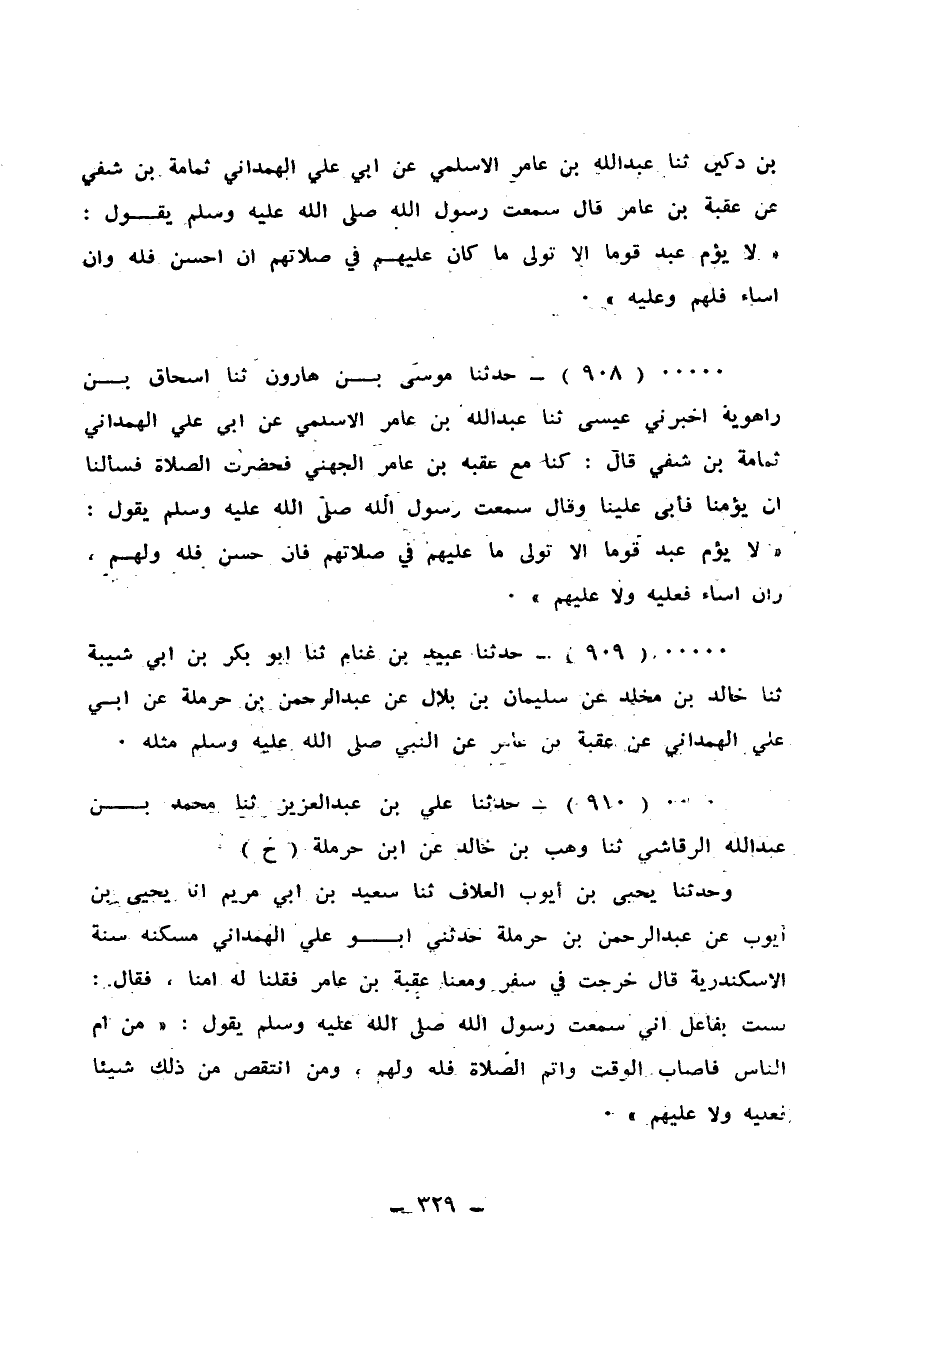 بن دكين ثنا عبدالله بن عامر الاسلمي عن ابي علي الهمداني ثمامة بن شفي
عن عقبة بن عامر قال سمعت رسول الله صلى الله عليه وسلم يقـــول :
« لا يؤم عبد قوما الا تولى ما كان عليهـم في صلاتهم ان احسن فله وان
اساء فلهم وعليه » ٠
٠٠٠٠٠ ( ٩٠٨ ) ــ حدثنا موسى بـــن هارون ثنا اسحاق بـــن
راهوية اخبرني عيسى ثنا عبدالله بن عامر الاسلمي عن ابي علي الهمداني
ثمامة بن شفي قال : كنا مع عقبه بن عامر الجهني فحضرت الصلاة فسألنا
ان يؤمنا فأبى علينا وقال سمعت رسول الله صلى الله عليه وسلم يقول :
« لا يؤم عبد قوما الا تولى ما عليهم في صلاتهم فان حسن فله ولهـم ،
ران اساء فعليه ولا عليهم » ٠
٠٠٠٠٠٠ ( ٩٠٩ ) ــ حدثنا عبيد بن غنام ثنا ابو بكر بن ابي شيبة
ثنا خالد بن مخلد عن سليمان بن بلال عن عبدالرحمن بن حرملة عن ابـي
علي الهمداني عن عقبة بن عامر عن النبي صلى الله عليه وسلم مثله ٠
٠ ٠٠٠ ( ٩١٠ ) ــ حدثنا علي بن عبدالعزيز ثنا محمد بـــــن
عبدالله الرقاشي ثنا وهب بن خالد عن ابن حرملة ( خ ) ٠
وحدثنا يحيى بن أيوب العلاف ثنا سعيد بن ابي مريم انا يحيى بن
أيوب عن عبدالرحمن بن حرملة حدثني ابـــو علي الهمداني مسكنه سنة
الاسكندرية قال خرجت في سفر ومعنا عقبة بن عامر فقلنا له امنا ، فقال :
ست بفاعل اني سمعت رسول الله صلى الله عليه وسلم يقول : « من ام
الناس فاصاب الوقت واتم الصلاة فله ولهم ، ومن انتقص من ذلك شيئا
فعليه ولا عليهم » ٠
ــ ٣٢٩ ــ